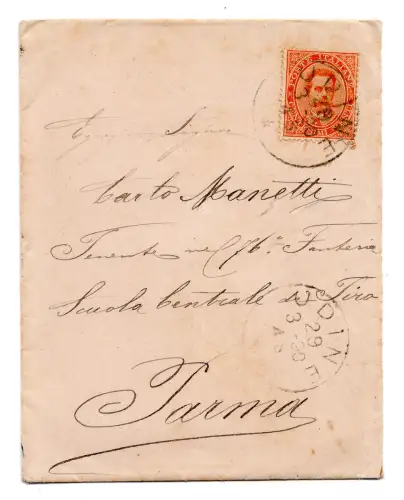 POSTE ITALIANE
UDINE
Signor
Carlo Manetti
Tenente nel 76º Fanteria
Scuola Centrale di Tiro
Parma
UDINE
29
3-80